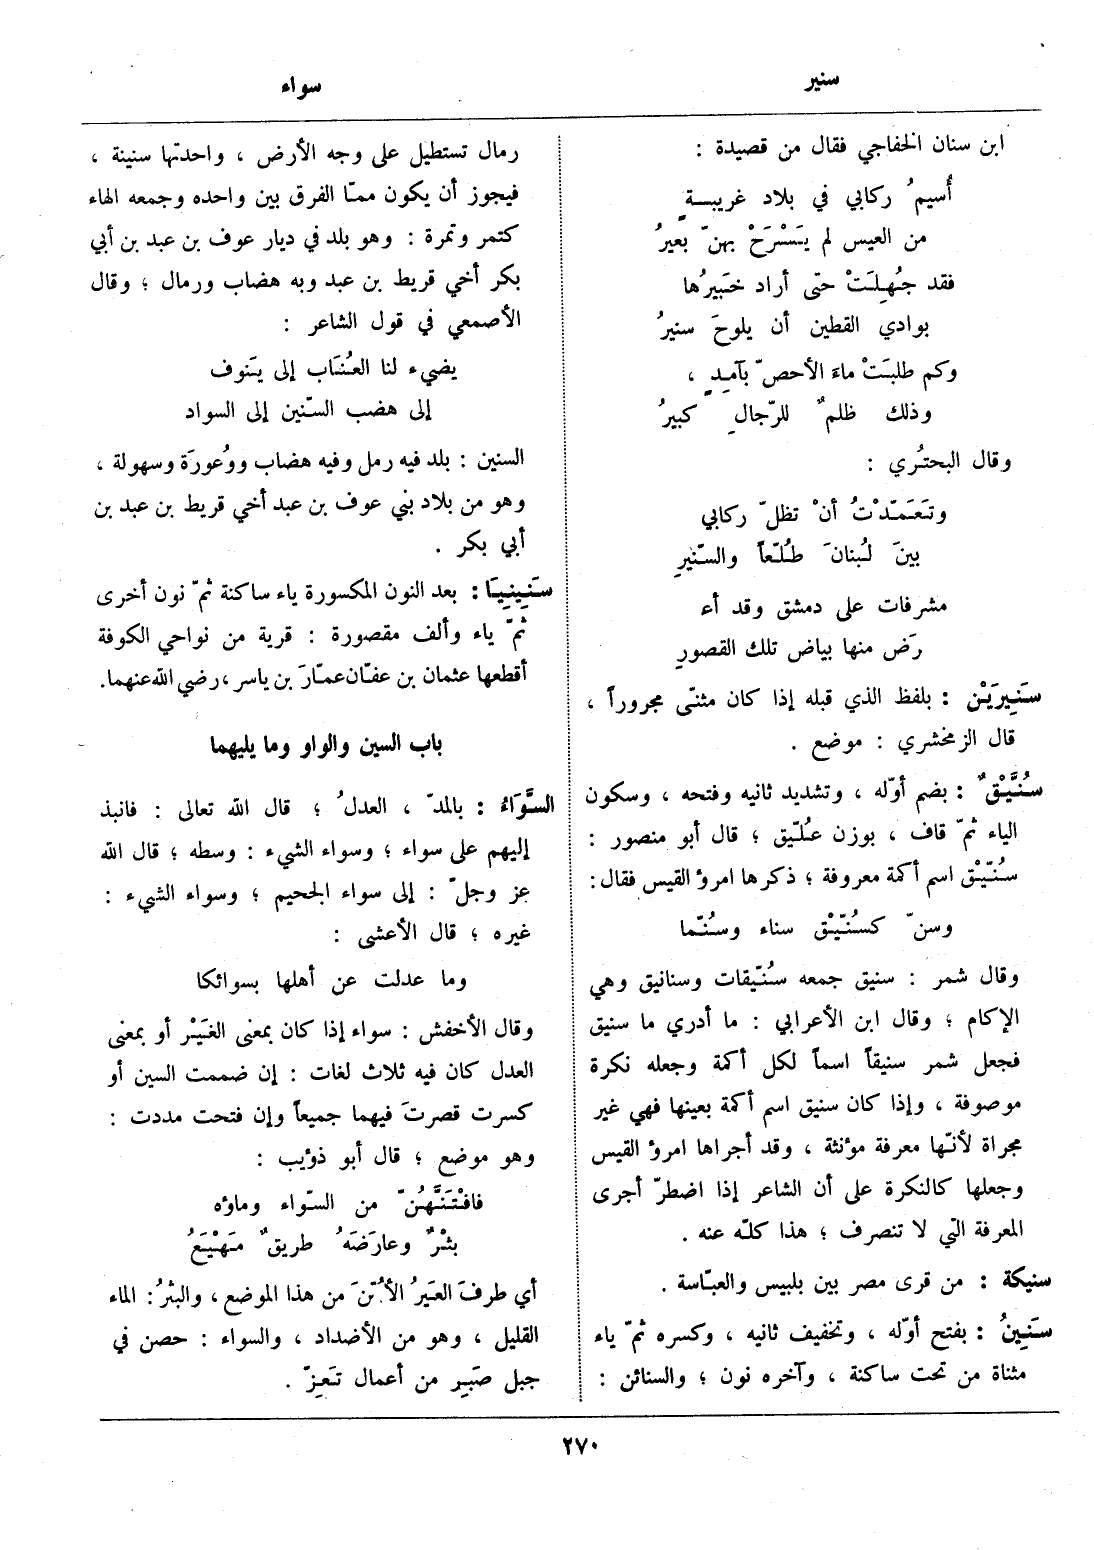 سنير
سواء
ابن سنان الخفاجي فقال من قصيدة :
أُسيمُ ركابي في بلاد غريبةٍ
من العيس لم يَسْرَحْ بهنّ بعيرُ
فقد جُهِلَتْ حتى أراد خَبيرُها
بوادي القطين أن يلوحَ سنيرُ
وكم طلبَتْ ماءَ الأحصّ بآمِدٍ ،
وذلك ظلمٌ للرّجالِ كبيرُ
وقال البحتُري :
وتَعَمّدْتُ أنْ تظلّ ركابي
بينَ لُبنانَ طُلّعاً والسّنيرِ
مشرفات على دمشق وقد أء
رَضَ منها بياض تلك القصورِ
سَنِيرَيْن : بلفظ الذي قبله إذا كان مثنّى مجروراً ،
قال الزمخشري : موضع .
سُنَّيْقٌ : بضم أوّله ، وتشديد ثانيه وفتحه ، وسكون
الياء ثمّ قاف ، بوزن عُلّيق ؛ قال أبو منصور :
سُنّيْق اسم أكمة معروفة ؛ ذكرها امرؤ القيس فقال :
وسنّ كسُنّيْق سناء وسُنّما
وقال شمر : سنيق جمعه سُنّيقات وسنانيق وهي
الإكام ؛ وقال ابن الأعرابي : ما أدري ما سنيق
فجعل شمر سنيقاً اسماً لكل أكمة وجعله نكرة
موصوفة ، وإذا كان سنيق اسم أكمة بعينها فهي غير
مجراة لأنّها معرفة مؤنثة ، وقد أجراها امرؤ القيس
وجعلها كالنكرة على أن الشاعر إذا اضطرّ أجرى
المعرفة التي لا تنصرف ؛ هذا كلّه عنه .
سنيكة : من قرى مصر بين بلبيس والعبّاسة .
سَنِينُ : بفتح أوّله ، وتخفيف ثانيه ، وكسره ثمّ ياء
مثناة من تحت ساكنة ، وآخره نون ؛ والسنائن :
رمال تستطيل على وجه الأرض ، واحدتها سنينة ،
فيجوز أن يكون ممّا الفرق بين واحده وجمعه الهاء
كتمر وتمرة : وهو بلد في ديار عوف بن عبد بن أبي
بكر أخي قريط بن عبد وبه هضاب ورمال ؛ وقال
الأصمعي في قول الشاعر :
يضيء لنا العُنَاب إلى يَنوف
إلى هضب السّنين إلى السواد
السنين : بلد فيه رمل وفيه هضاب ووُعورَة وسهولة ،
وهو من بلاد بني عوف بن عبد أخي قريط بن عبد بن
أبي بكر .
سَنِينِيَا : بعد النون المكسورة ياء ساكنة ثمّ نون أخرى
ثمّ ياء وألف مقصورة : قرية من نواحي الكوفة
أقطعها عثمان بن عفّان عمّارَ بن ياسر ، رضي الله عنهما.
باب السين والواو وما يليهما
السَّوَاءُ : بالمدّ ، العدلُ ؛ قال الله تعالى : فانبذ
إليهم على سواء ؛ وسواء الشيء : وسطه ؛ قال الله
عز وجلّ : إلى سواء الجحيم ؛ وسواء الشيء :
غيره ؛ قال الأعشى :
وما عدلت عن أهلها بسوائكا
وقال الأخفش : سواء إذا كان بمعنى الغَيْر أو بمعنى
العدل كان فيه ثلاث لغات : إن ضممت السين أو
كسرت قصرتَ فيهما جميعاً وإن فتحت مددت :
وهو موضع ؛ قال أبو ذؤيب :
فافْتَنَّهُنّ من السّواء وماؤه
بثْرٌ وعارَضَهُ طريقٌ مَهْيَعُ
أي طرفَ العَيرُ الأُتنَ من هذا الموضع ، والبثرُ : الماء
القليل ، وهو من الأضداد ، والسواء : حصن في
جبل صَبِر من أعمال تَعِزّ .
٢٧٠